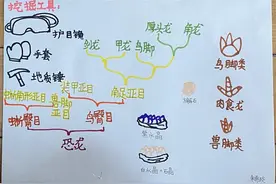 挖掘工具:
护目镜
手套
地质锤
剑龙
甲龙
鸟脚
厚头龙
角龙
装甲亚目
角足亚目
蜥脚形亚目
兽脚亚目
蜥臀目
鸟臀目
恐龙
紫水晶
鸟脚类
肉食龙
兽脚类